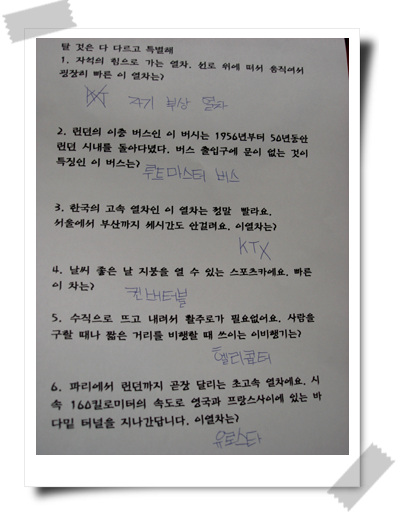 탈 것은 다 다르고 특별해
1. 자석의 힘으로 가는 열차. 선로 위에 떠서 움직여서
굉장히 빠른 이 열차는?
자기 부상 열차
2. 런던의 이층 버스인 이 버시는 1956년부터 50년동안
런던 시내를 돌아다녔다. 버스 출입구에 문이 없는 것이
특징인 이 버스는?
루트마스터 버스
3. 한국의 고속 열차인 이 열차는 정말 빨라요.
서울에서 부산까지 세시간도 안걸려요. 이열차는?
KTX
4. 날씨 좋은 날 지붕을 열 수 있는 스포츠카에요. 빠른
이 차는?
컨버터블
5. 수직으로 뜨고 내려서 활주로가 필요없어요. 사람을
구할 때나 짧은 거리를 비행할 때 쓰이는 이비행기는?
헬리콥터
6. 파리에서 런던까지 곧장 달리는 초고속 열차에요. 시
속 160킬로미터의 속도로 영국과 프랑스사이에 있는 바
다밑 터널을 지나간답니다. 이열차는?
유로스타